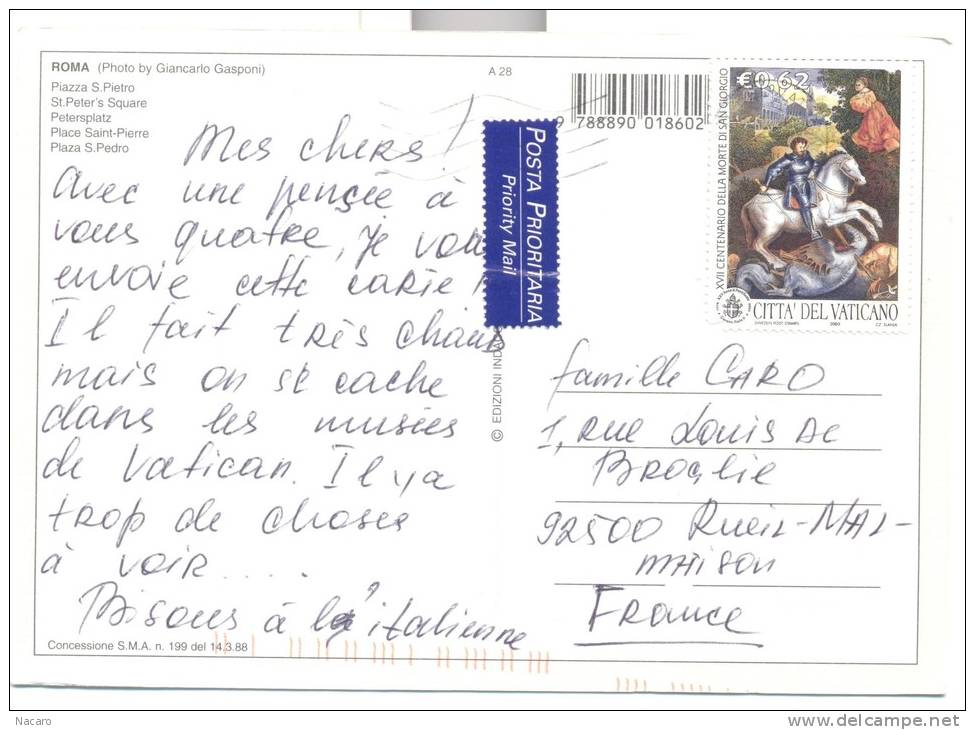 ROMA (Photo by Giancarlo Gasponi)
Piazza S.Pietro
St.Peter's Square
Petersplatz
Place Saint-Pierre
Plaza S.Pedro
A 28
9 788890 018602
POSTA PRIORITARIA
Priority Mail
€0,62
XVII CENTENARIO DELLA MORTE DI SAN GIORGIO
CITTA' DEL VATICANO
2003
Mes chers!
Avec une pensée à
vous quatre, je vou
envoie cette carte!
Il fait très chaud
mais on se cache
dans les musées
de Vatican. Il ya
trop de choses
à voir.....
Bisous à l'italienne
© EDIZIONI INDA
famille CARO
1, rue Louis de
Broglie
92500 Rueil-Mal-
maison
France
Concessione S.M.A. n. 199 del 14.3.88
Nacaro
delcampe.net